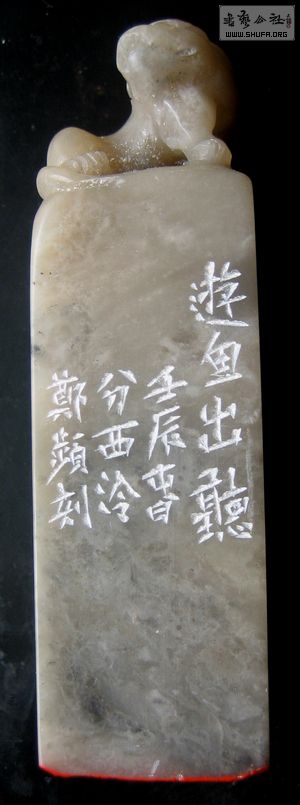 書藝公社
WWW.SHUFA.ORG
遊鱼出聽
壬辰春
分西泠
鄭蘋刻